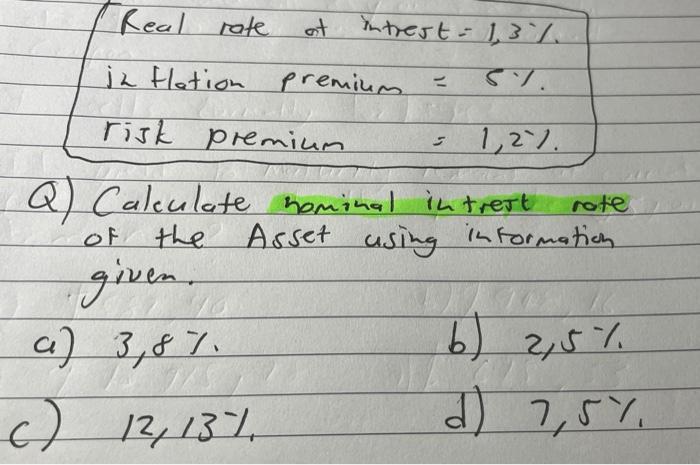 Real rate of intrest = 1,3%.
inflation premium = 5%.
risk premium = 1,2%.
Q) Calculate nominal intrest rate
of the Asset using information
given.
a) 3,8%. b) 2,5%.
c) 12,13%. d) 7,5%.